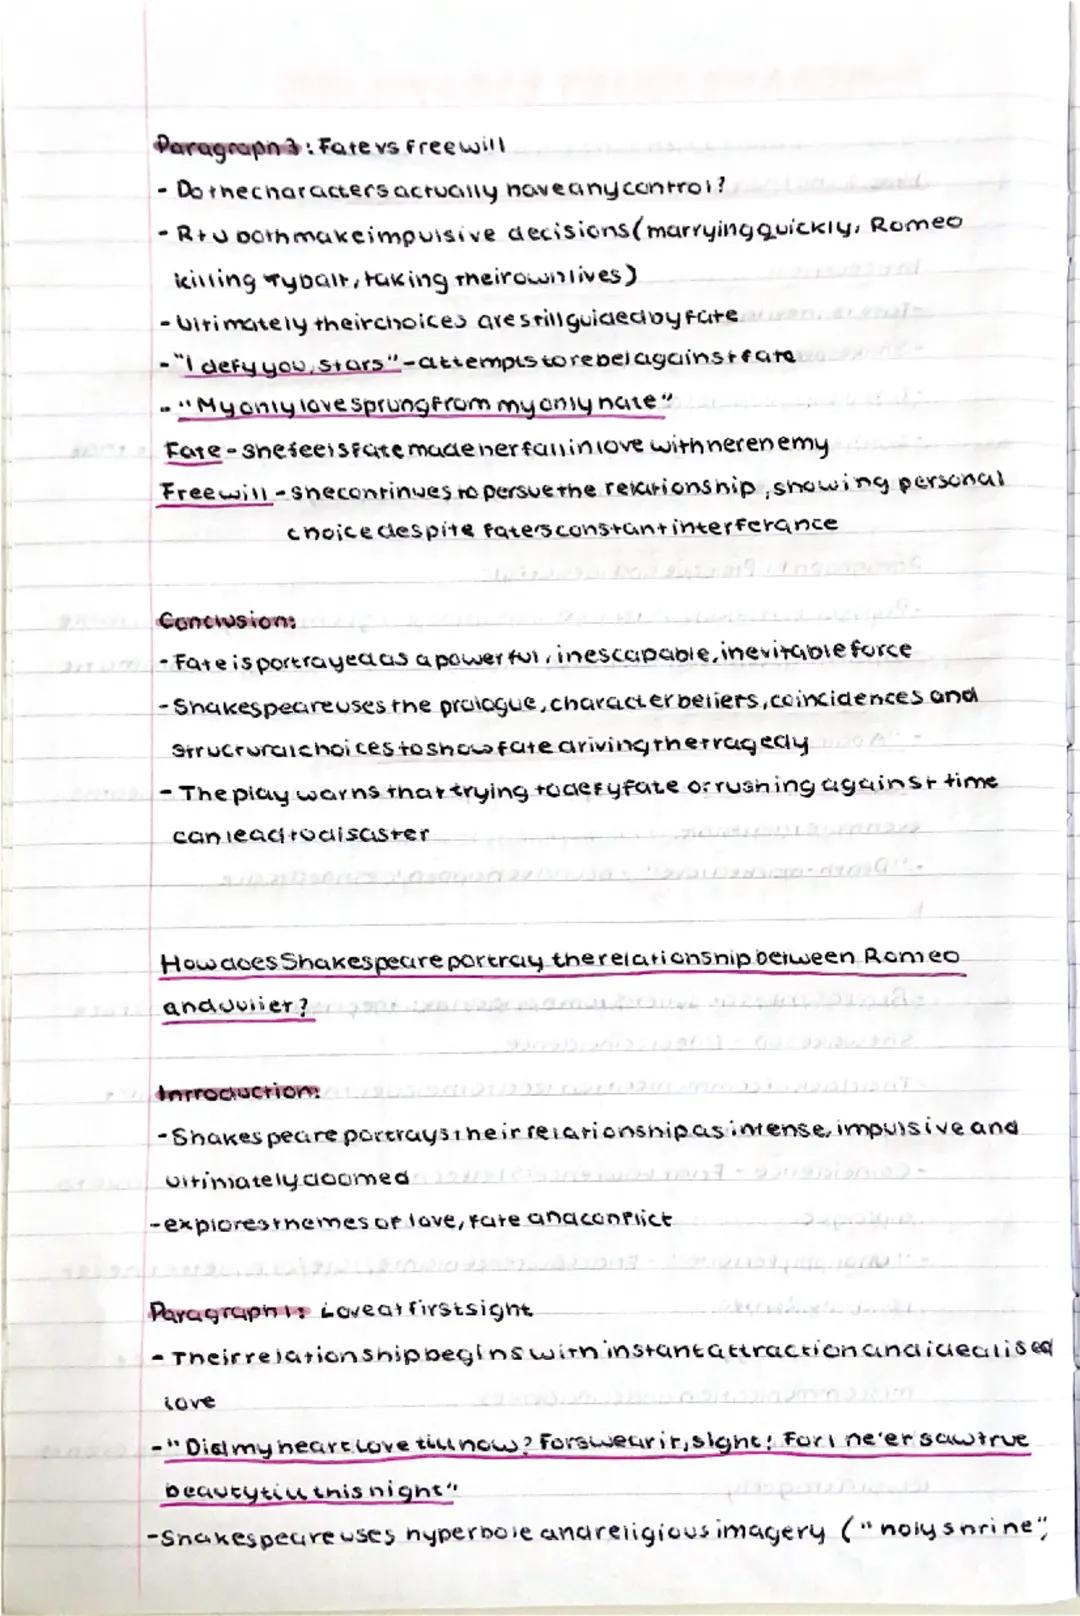 Paragraph 3: Fate vs Freewill
- Do the characters actually have any control?
- R+J both make impulsive decisions (marrying quickly, Romeo
killing Tybalt, taking their own lives)
- Ultimately their choices are still guided by fate
- "I defy you, stars" - attempts to rebel against fate
- "My only love sprung from my only hate"
Fate - she feels fate made her fall in love with her enemy
Freewill - she continues to persue the relationship, showing personal
choice despite fate's constant interferance
Conclusion:
- Fate is portrayed as a powerful, inescapable, inevitable force
- Shakespeare uses the prologue, character beliefs, coincidences and
structural choices to show fate driving the tragedy
- The play warns that trying to defy fate or rushing against time
can lead to disaster
How does Shakespeare portray the relationship between Romeo
and Juliet?
Introduction:
- Shakespeare portrays their relationship as intense, impulsive and
ultimately doomed
- explores themes of love, fate and conflict
Paragraph 1: Love at first sight
- Their relationship begins with instant attraction and idealised
love
- "Did my heart love till now? Forswear it, sight! For I ne'er saw true
beauty till this night"
- Shakespeare uses hyperbole and religious imagery ("holy shrine",